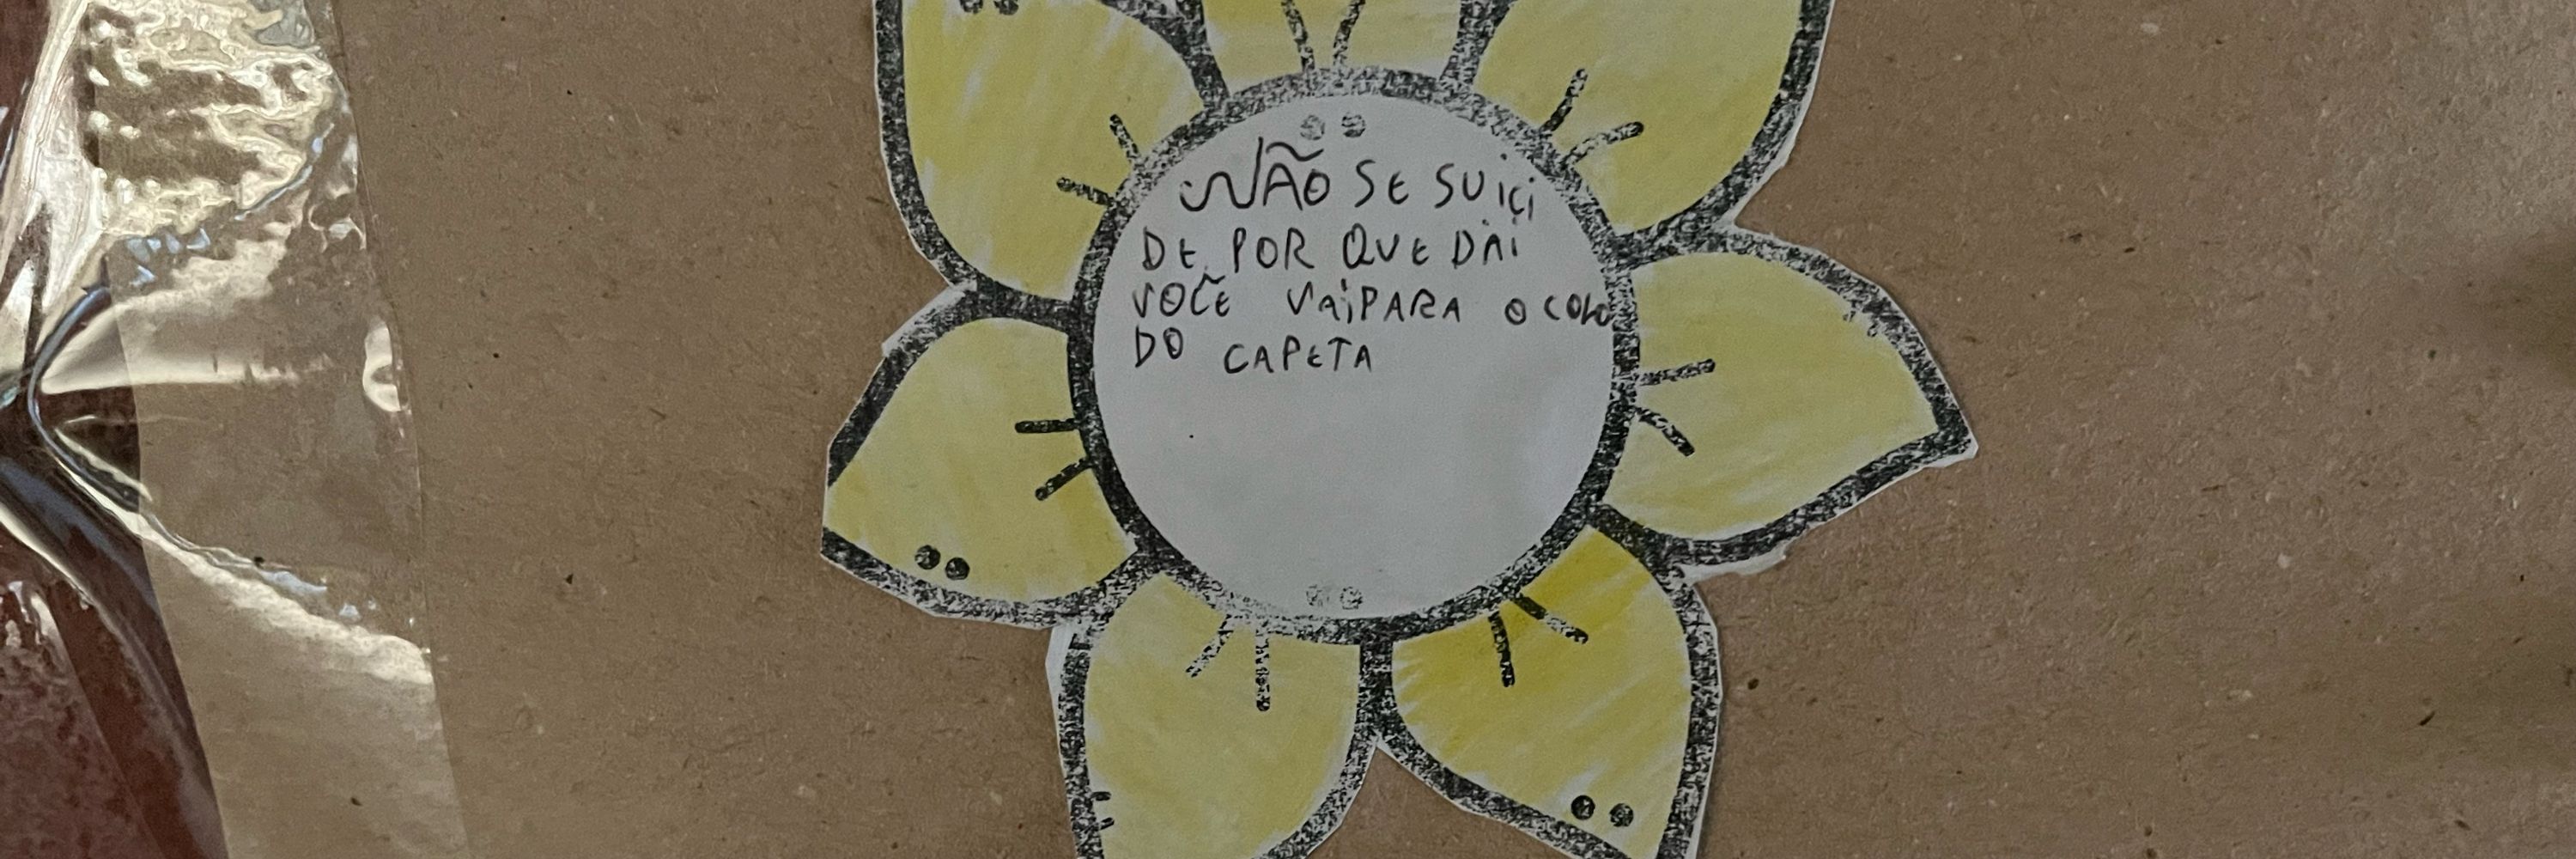 NÃO SE SUIÇI
DE POR QUE DAI
VOCÊ VAI PARA O COLO
DO CAPETA